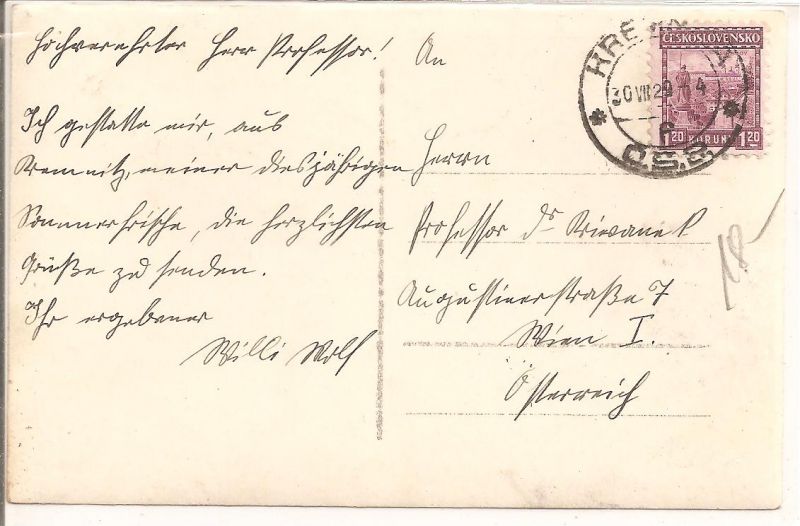 Hochverehrter Herr Professor!
Ich gestatte mir, aus
Kremnitz, meiner diesjährigen
Sommerfrische, die herzlichsten
Grüße zu senden.
Ihr ergebener
Willi Wolf
An
Herrn
Professor Dr Krivanek
Augustinerstraße 7
Wien I.
Österreich
ČESKOSLOVENSKO
1.20 KORUN 1.20
KRE
30 VII 29 - 4
Č.S.R.
18-